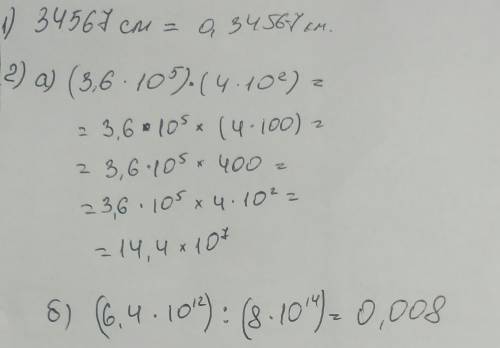 1) 34567 см = 0,34567 км.
2) а) (3,6 · 10⁵) · (4 · 10²) =
= 3,6 · 10⁵ × (4 · 100) =
= 3,6 · 10⁵ × 400 =
= 3,6 · 10⁵ × 4 · 10² =
= 14,4 × 10⁷
б) (6,4 · 10¹²) : (8 · 10¹⁴) = 0,008